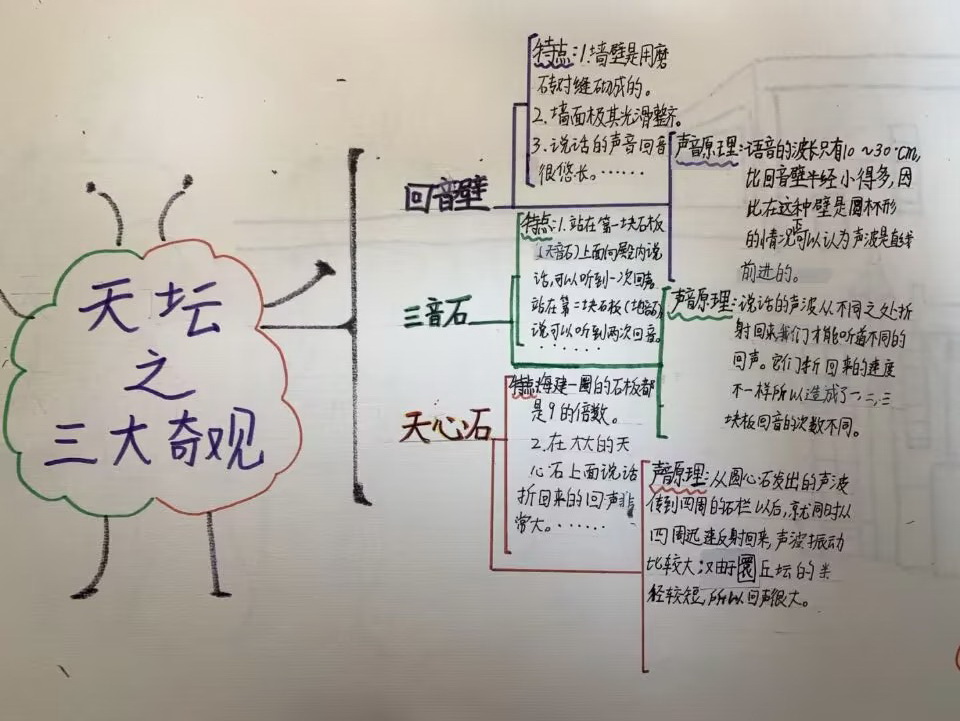 天坛
之
三大奇观
回音壁
特点:1.墙壁是用磨
砖对缝砌成的。
2.墙面极其光滑整齐。
3.说话的声音回音
很悠长。······
声音原理:语音的波长只有10~30·cm,
比回音壁半经小得多,因
此在这种壁是圆杯形
的情况可以认为声波是直线
前进的。
三音石
特点:1.站在第一块石板
(天音石)上面向殿内说
话,可以听到一次回声
站在第二块石板(地音石)
说可以听到两次回音。
······
声音原理:说话的声波从不同之处折
射回来我们才能听道不同的
回声。它们折回来的速度
不一样所以造成了一,二,三
块板回音的次数不同。
天心石
特点:每建一圈的石板都
是9的倍数。
2.在大大的天
心石上面说话
折回来的回声非
常大。······
声音原理:从圆心石发出的声波
传到四周的石栏以后,就同时从
四周迅速反射回来,声波振动
比较大;又由于圜丘坛的半
经较短,所以回声很大。